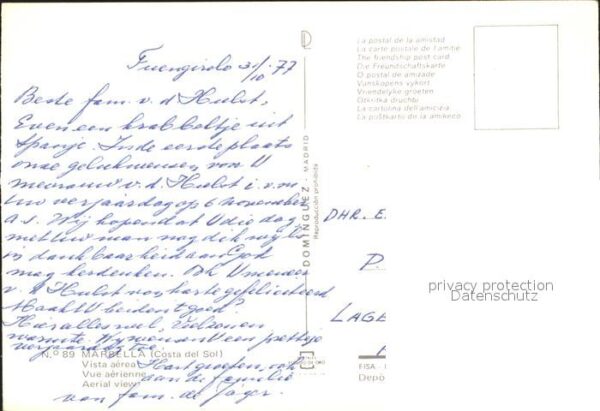 Fuengirola 31/10 '77
Beste fam. v. d Hulst,
Even een krabbeltje uit
Spanje. In de eerste plaats
onze gelukwensen, voor U
mevrouw v. d. Hulst i. v. m
Uw verjaardag op 6 november
a.s. Wij hopen dat U die dag
met Uw man nog dikwijls
in dankbaarheid aan God
mag herdenken. Ook U meneer
v. d Hulst van harte gefeliciteerd
Maakt U beiden 't goed?
Hier alles wel, veel zon en
warmte. Wij wensen U een prettige
verjaardag toe.
Hart. groeten, ook
aan de familie
van fam. de Jager.
Nº 89 MARBELLA (Costa del Sol)
Vista aérea
Vue aérienne
Aerial view
DOMINGUEZ - MADRID
Reproducción prohibida
La postal de la amistad
La carte postale de l'amitié
The friendship post card
Die Freundschaftskarte
O postal de amizade
Vänskapens vykort
Vriendelijke groeten
Otkritka druchbi
La cartolina dell'amicizia
La poŝtkarto de la amikeco
DHR. E.
D
LAGE
privacy protection
Datenschutz
FISA -
Depó